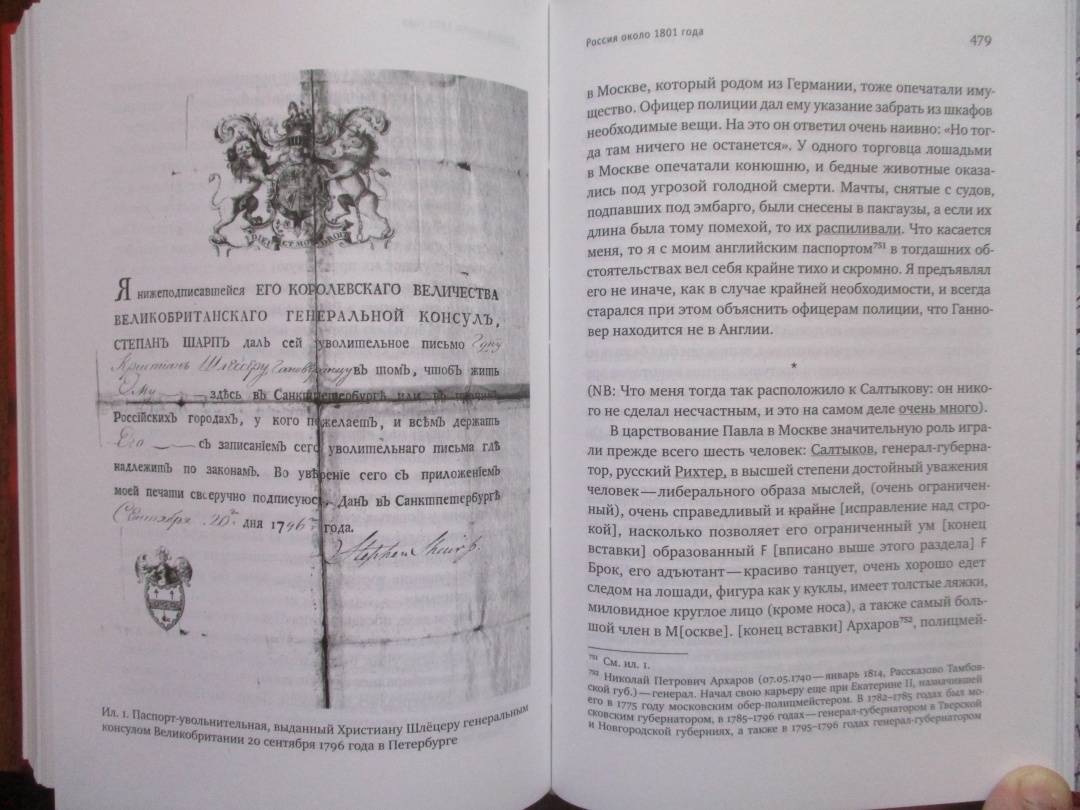 Я нижеподписавшейся ЕГО КОРОЛЕВСКАГО ВЕЛИЧЕСТВА
ВЕЛИКОБРИТАНСКАГО ГЕНЕРАЛЬНОЙ КОНСУЛЪ,
СТЕПАНЪ ШАРПЪ далъ сей уволительное письмо
Кристианъ Шлёцеру ганноверанцу въ томъ, чтобъ жить
Ему здѣсь въ Санктпетербургѣ или въ прочихъ
Россійскихъ городахъ, у кого пожелаетъ, и всѣмъ держать
Его съ записаніемъ сего уволительнаго письма гдѣ
надлежитъ по законамъ. Во увѣреніе сего съ приложеніемъ
моей печати своеручно подписуюсь, Данъ въ Санктпетербургѣ
Сентября 20 дня 1796 года.
Stephen Shairp.
Ил. 1. Паспорт-увольнительная, выданный Христиану Шлёцеру генеральным
консулом Великобритании 20 сентября 1796 года в Петербурге
Россия около 1801 года
479
в Москве, который родом из Германии, тоже опечатали иму-
щество. Офицер полиции дал ему указание забрать из шкафов
необходимые вещи. На это он ответил очень наивно: «Но тог-
да там ничего не останется». У одного торговца лошадьми
в Москве опечатали конюшню, и бедные животные оказа-
лись под угрозой голодной смерти. Мачты, снятые с судов,
подпавших под эмбарго, были снесены в пакгаузы, а если их
длина была тому помехой, то их распиливали. Что касается
меня, то я с моим английским паспортом751 в тогдашних об-
стоятельствах вел себя крайне тихо и скромно. Я предъявлял
его не иначе, как в случае крайней необходимости, и всегда
старался при этом объяснить офицерам полиции, что Ганно-
вер находится не в Англии.
*
(NB: Что меня тогда так расположило к Салтыкову: он нико-
го не сделал несчастным, и это на самом деле очень много).
В царствование Павла в Москве значительную роль игра-
ли прежде всего шесть человек: Салтыков, генерал-губерна-
тор, русский Рихтер, в высшей степени достойный уважения
человек — либерального образа мыслей, (очень ограничен-
ный), очень справедливый и крайне [исправление над стро-
кой], насколько позволяет его ограниченный ум [конец
вставки] образованный F [вписано выше этого раздела] F
Брок, его адъютант — красиво танцует, очень хорошо едет
следом на лошади, фигура как у куклы, имеет толстые ляжки,
миловидное круглое лицо (кроме носа), а также самый боль-
шой член в М[оскве]. [конец вставки] Архаров752, полицмей-
751 См. ил. 1.
752 Николай Петрович Архаров (07.05.1740 — январь 1814, Рассказово Тамбов-
ской губ.) — генерал. Начал свою карьеру еще при Екатерине II, назначившей
его в 1775 году московским обер-полицмейстером. В 1782–1785 годах был мо-
сковским губернатором, в 1785–1796 годах — генерал-губернатором в Тверской
и Новгородской губерниях, а также в 1795–1796 годах генерал-губернатором